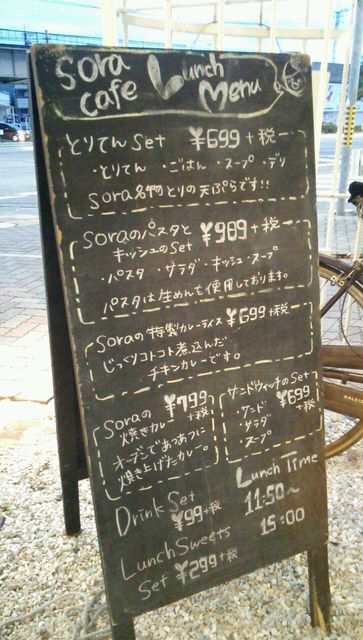 Sora cafe Lunch Menu
とりてん Set ¥699+税
・とりてん ・ごはん ・スープ ・デリ
Sora名物とりの天ぷらです!!
Soraのパスタと
キッシュのSet ¥989+税
・パスタ ・サラダ ・キッシュ ・スープ
パスタは生めんを使用しております。
Soraの特製カレーライス ¥699+税
じっくりコトコト煮込んだ
チキンカレーです。
Soraの焼きカレー ¥799+税
オーブンであつあつに
焼き上げたカレー。
サンドウィッチのSet
¥699+税
・サンド
・サラダ
・スープ
Drink Set
¥99+税
Lunch Sweets
Set ¥299+税
Lunch Time
11:50~
15:00
RALEIGH